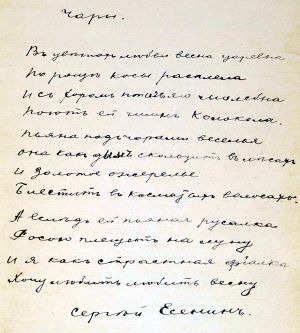 Чары.
Въ цвѣтахъ любви весна царевна
По рощѣ косы расплела
И съ хоромъ птичьяго молебна
Поютъ ей гимнъ колокола.
Пьяна подъ чарами веселья
Она какъ дымъ скользитъ въ лѣсахъ
И золотое ожерелье
Блеститъ в косматыхъ волосахъ.
А вслѣдъ ей пьяная русалка
Росою плещетъ на луну
И я какъ страстная фіалка
Хочу любить любить весну
Сергѣй Есенинъ.